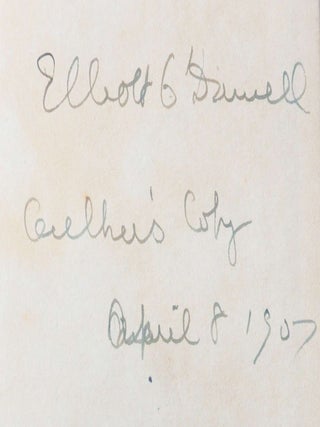 Elliott O'Donnell
Author's Copy
April 8 1907